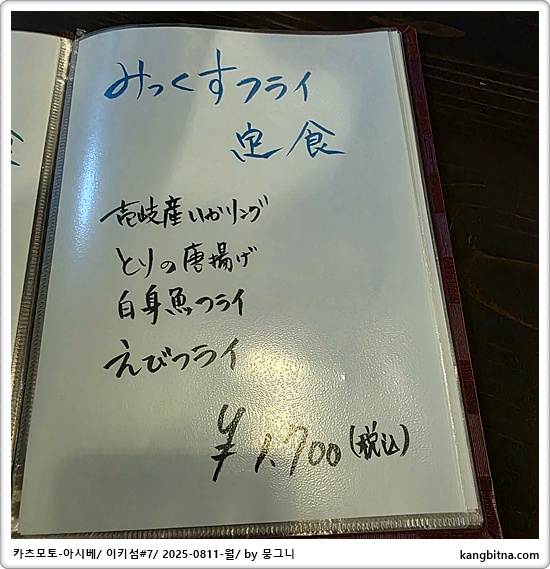 みっくすフライ
定食
壱岐産いかリング
とりの唐揚げ
白身魚フライ
えびフライ
¥1,700(税込)
카츠모토-아시베/ 이키섬#7/ 2025-0811-월/ by 뭉그니
kangbitna.com